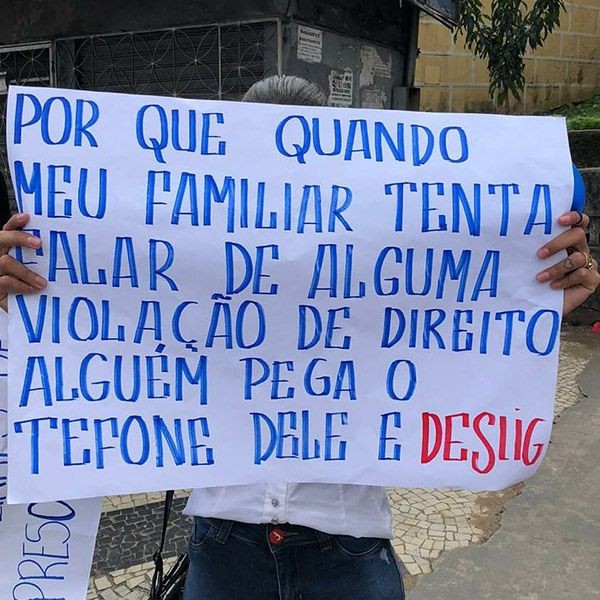 POR QUE QUANDO
MEU FAMILIAR TENTA
FALAR DE ALGUMA
VIOLAÇÃO DE DIREITO
ALGUÉM PEGA O
TEFONE DELE E DESLIG
PRESO